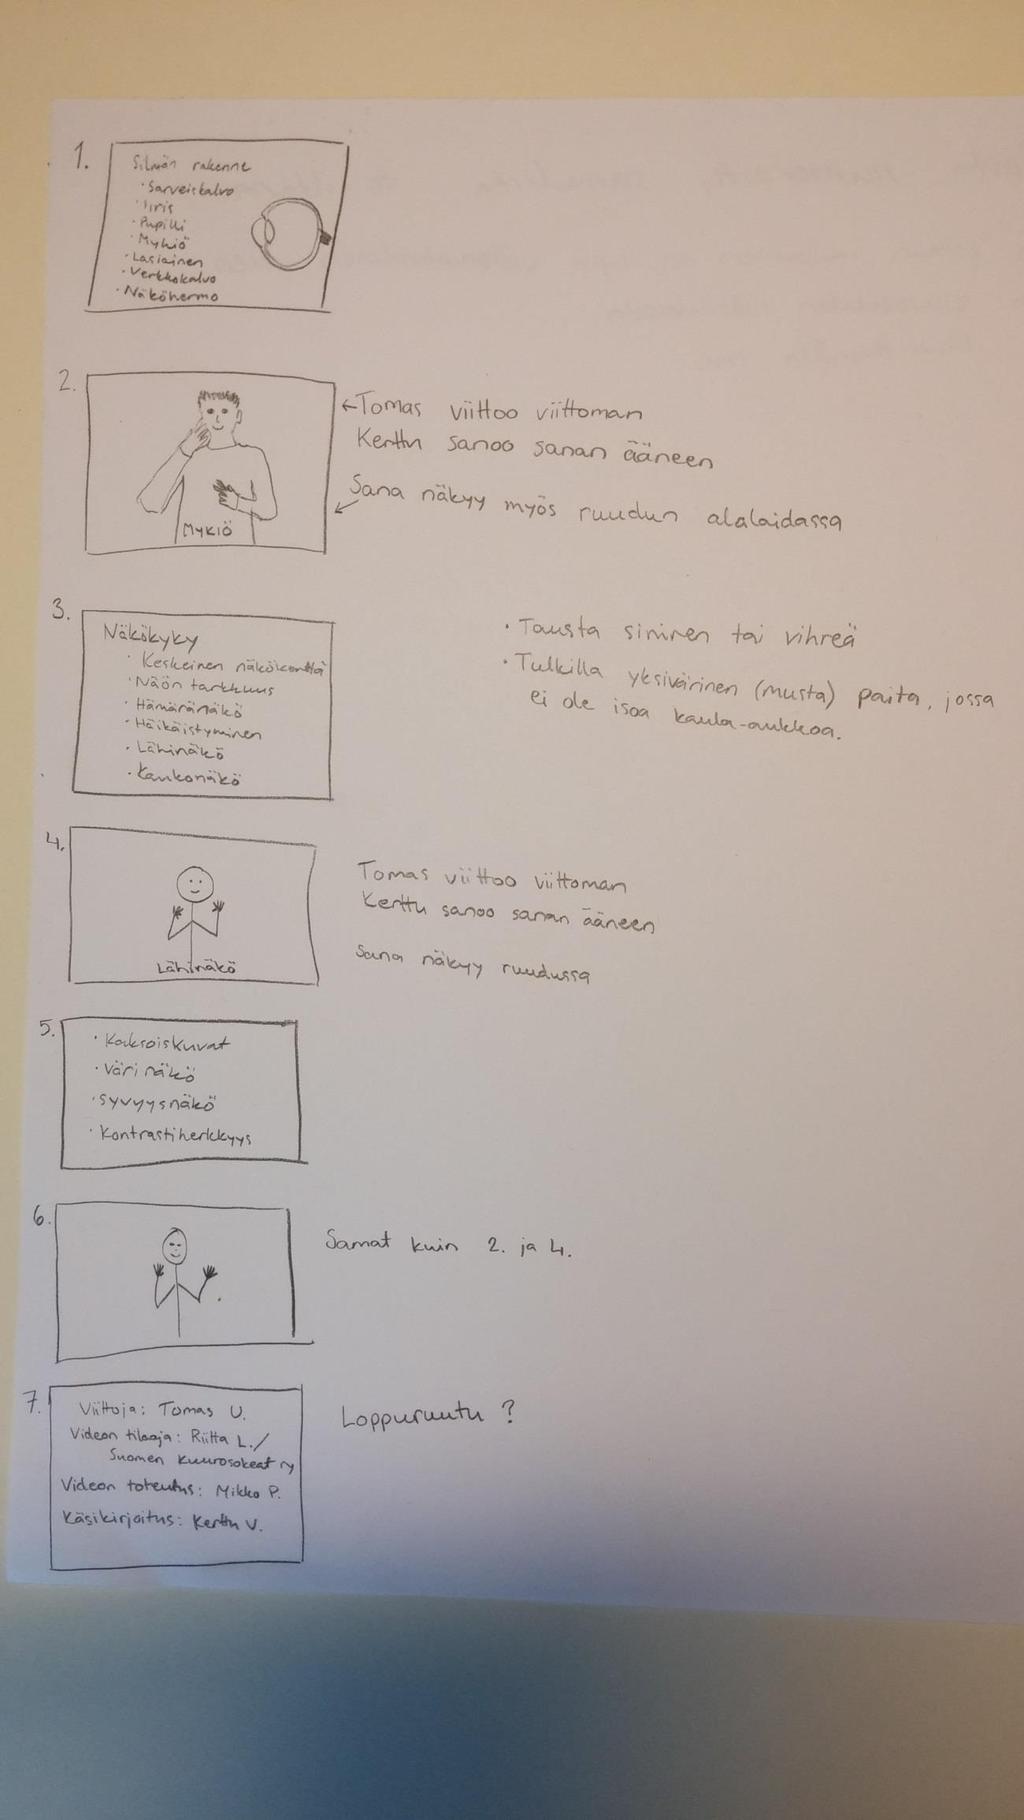 1.
Silmän rakenne
· Sarveiskalvo
· Iiris
· Pupilli
· Mykiö
· Lasiainen
· Verkkokalvo
· Näköhermo
2.
MYKIÖ
← Tomas viittoo viittoman
Kerttu sanoo sanan ääneen
Sana näkyy myös ruudun alalaidassa
3.
Näkökyky
· Keskeinen näkökenttä
· Näön tarkkuus
· Hämäränäkö
· Häikäistyminen
· Lähinäkö
· Kaukonäkö
· Tausta sininen tai vihreä
· Tulkilla yksivärinen (musta) paita, jossa
ei ole isoa kaula-aukkoa.
4.
Lähinäkö
Tomas viittoo viittoman
Kerttu sanoo sanan ääneen
Sana näkyy ruudussa
5.
· Kaksoiskuvat
· Värinäkö
· Syvyysnäkö
· Kontrastiherkkyys
6.
Samat kuin 2. ja 4.
7.
Viittoja: Tomas U.
Videon tilaaja: Riitta L./
Suomen Kuurosokeat ry
Videon toteutus: Mikko P.
Käsikirjoitus: Kerttu V.
Loppuruutu ?